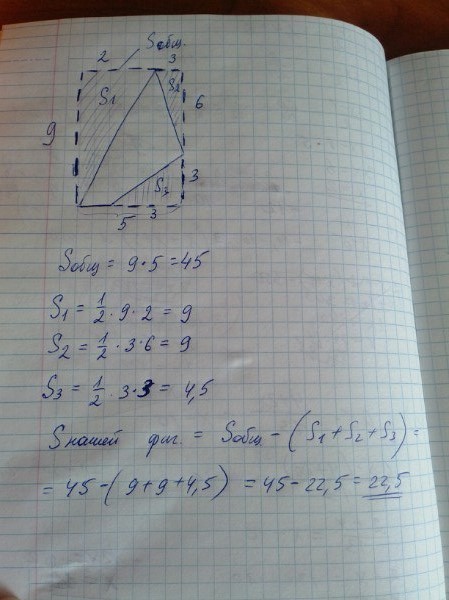 Sобщ.
2 3
S1 S2
9 6
S3 3
3
5
Sобщ = 9·5 = 45
S1 = 1/2 · 9 · 2 = 9
S2 = 1/2 · 3 · 6 = 9
S3 = 1/2 · 3 · 3 = 4,5
S нашей фиг. = Sобщ - (S1 + S2 + S3) =
= 45 - (9 + 9 + 4,5) = 45 - 22,5 = 22,5